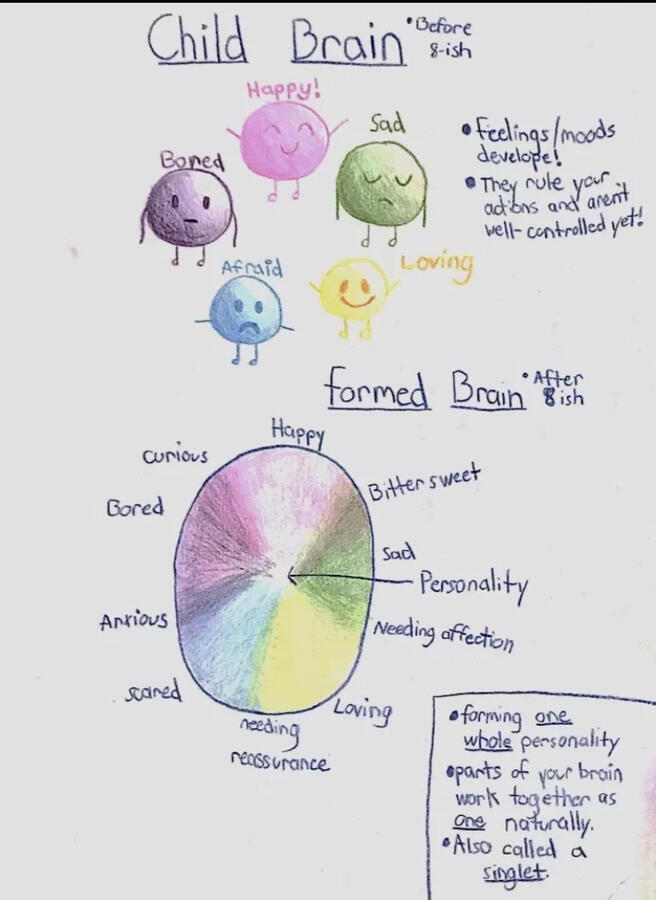 Child Brain
•Before
8-ish
Happy!
Sad
Bored
Afraid
Loving
• Feelings/moods
develope!
• They rule your
actions and arent
well-controlled yet!
Formed Brain
•After
8ish
Happy
curious
Bittersweet
Bored
Sad
Personality
Anxious
Needing affection
scared
Loving
needing
reassurance
•forming one
whole personality
•parts of your brain
work together as
one naturally.
•Also called a
singlet.